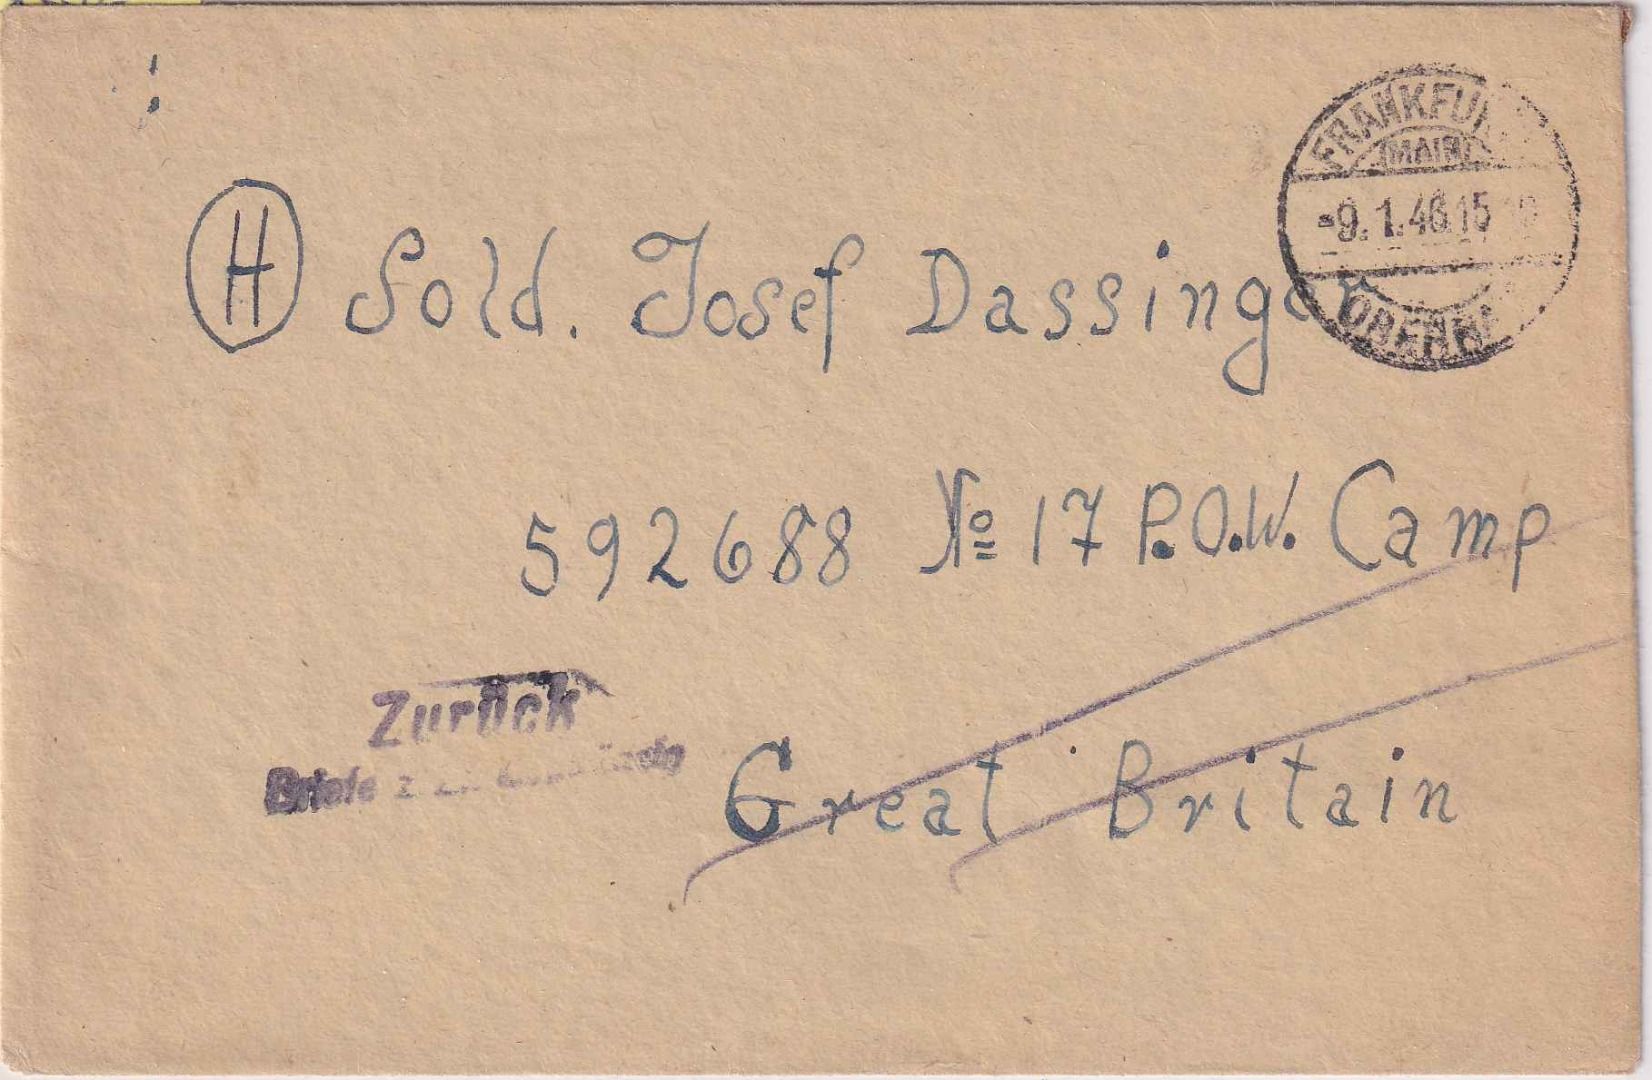 FRANKFU
(MAIN)
-9. 1. 46. 15
H Sold. Josef Dassinger
592688 No 17 P.O.W. Camp
Zurück
Briefe
Great Britain